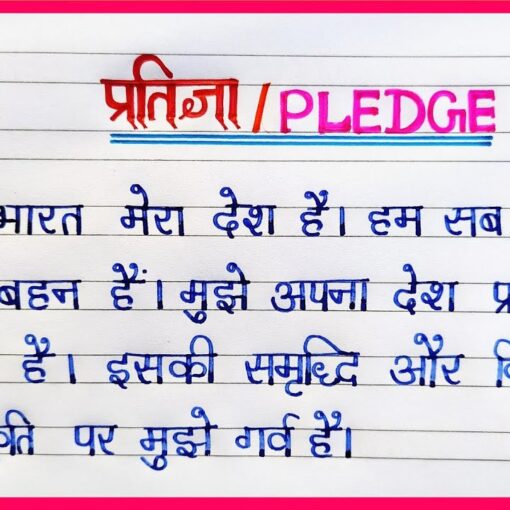 प्रतिज्ञा / PLEDGE
भारत मेरा देश है। हम सब
बहन हैं। मुझे अपना देश
है। इसकी समृद्धि और
पर मुझे गर्व है।